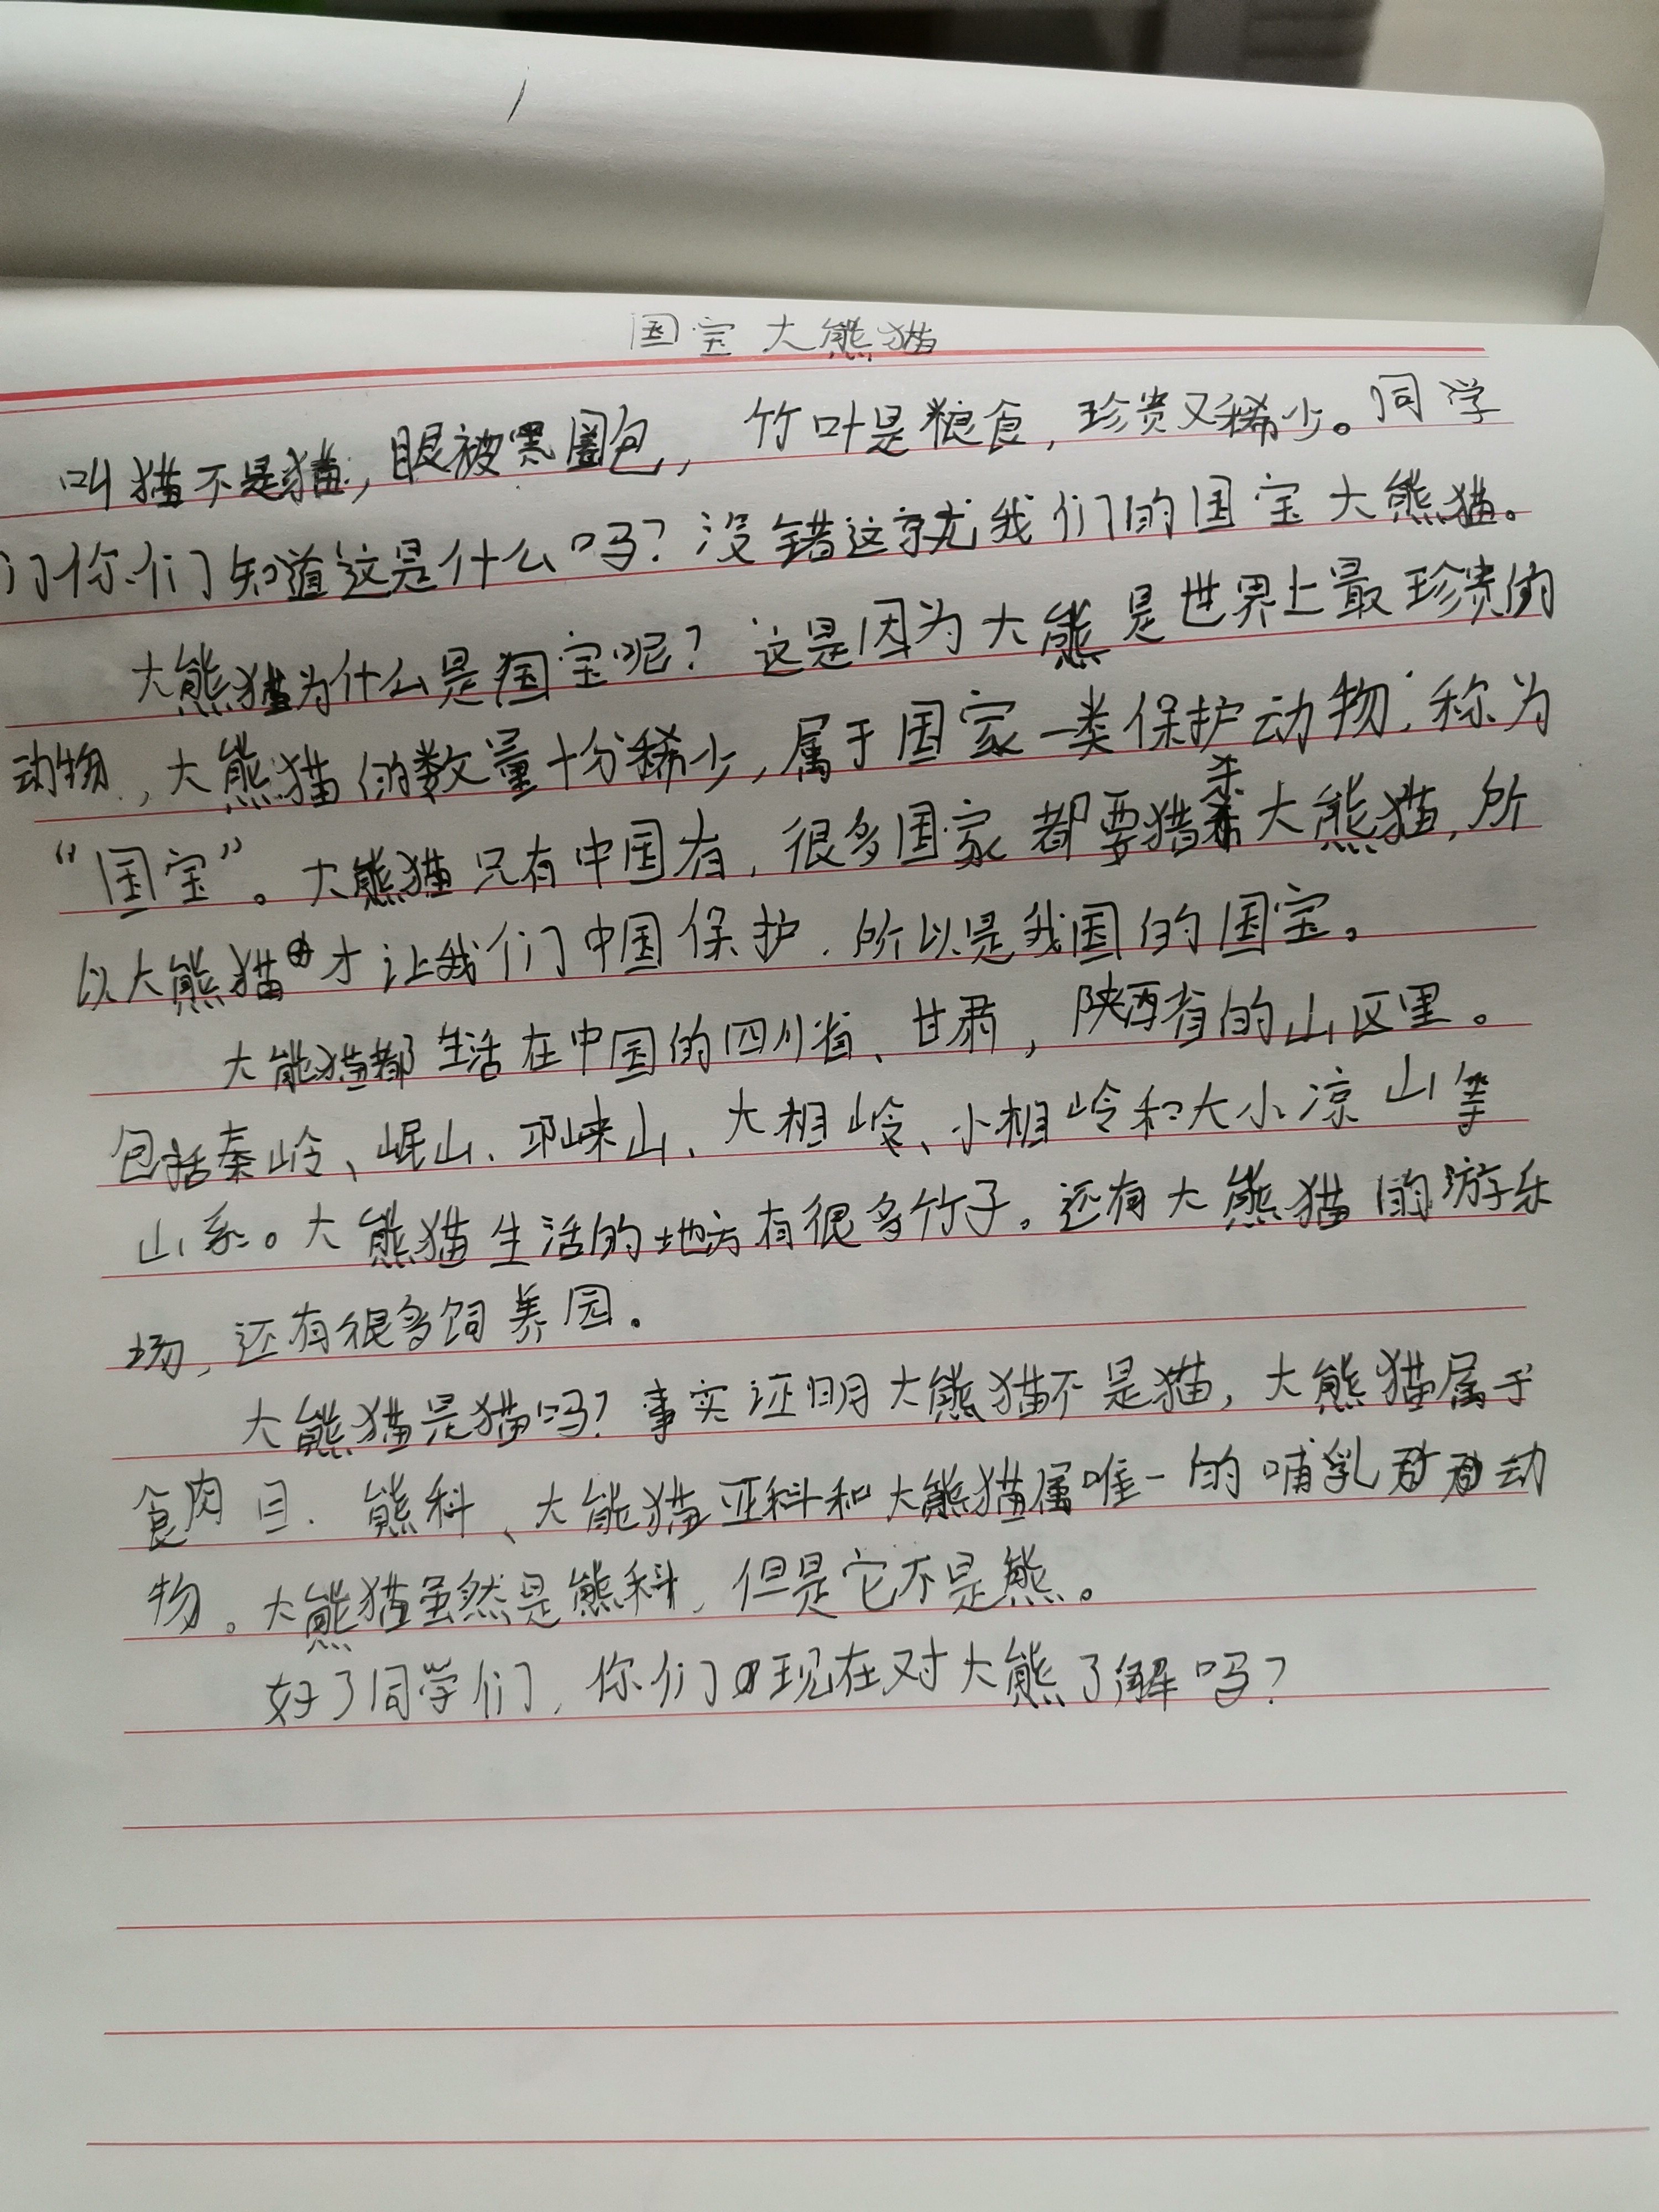 国宝大熊猫
叫猫不是猫，眼被黑圈包，竹叶是粮食，珍贵又稀少。同学
们你们知道这是什么吗？没错这就我们的国宝大熊猫。
大熊猫为什么是国宝呢？这是因为大熊是世界上最珍贵的
动物，大熊猫的数量十分稀少，属于国家一类保护动物，称为
“国宝”。大熊猫只有中国有，很多国家都要猎杀大熊猫，所
以大熊猫才让我们中国保护，所以是我国的国宝。
大熊猫都生活在中国的四川省、甘肃，陕西省的山区里。
包括秦岭、岷山、邛崃山、大相岭、小相岭和大小凉山等
山系。大熊猫生活的地方有很多竹子。还有大熊猫的游乐
场，还有很多饲养园。
大熊猫是猫吗？事实证明大熊猫不是猫，大熊猫属于
食肉目、熊科、大熊猫亚科和大熊猫属唯一的哺乳动
物。大熊猫虽然是熊科，但是它不是熊。
好了同学们，你们现在对大熊了解吗？